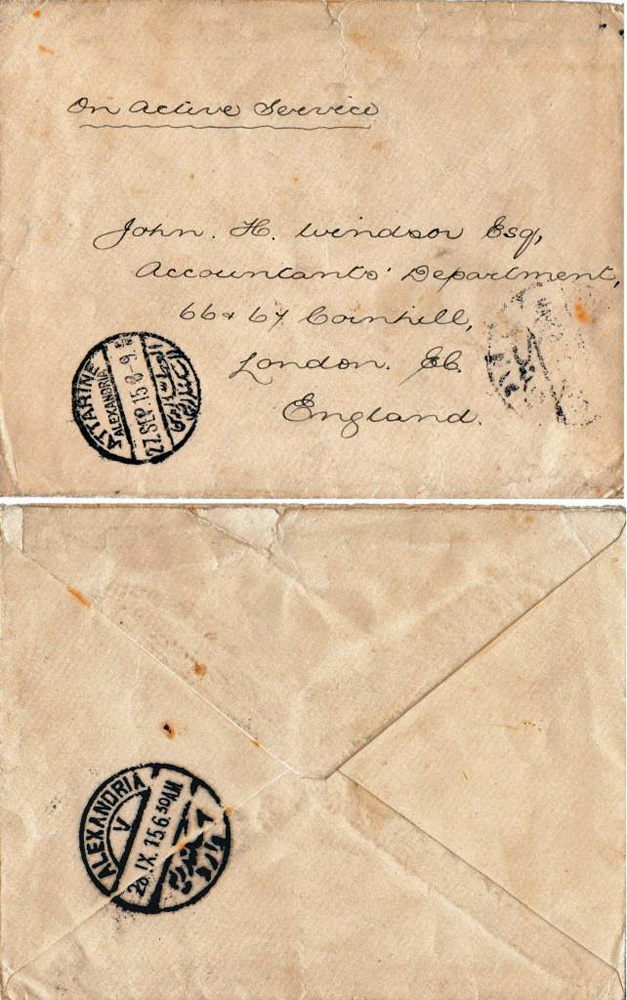 On Active Service
John. H. Windsor Esq,
Accountants' Department,
66 & 67 Cornhill,
London. EC.
England.
ATTARINE
ALEXANDRIA
22.SEP.15.8-9.
ALEXANDRIA
V
IX.15.6 30AM